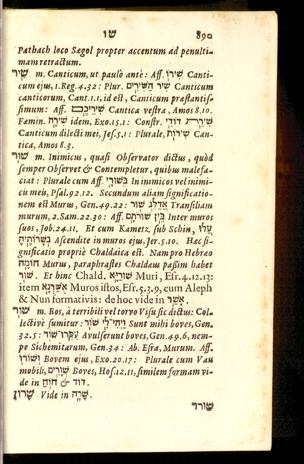 שו 890
Pathach loco Sægol propter accentum ad penulti-
mam retractum.
שיר m. Canticum, ut paulò antè: Aff. שירו Canti-
cum ejus, 1.Reg.4.32: Plur. שיר השירים Canticum
canticorum, Cant.1.1, id est, Canticum præstantis-
simum: Aff. Cantica vestra, Amos 8.10.
Fœmin. שירה idem, Exo.15.1: Constr. שירת דודי
Canticum dilecti mei, Jes.5.1: Plurale, שירות Can-
tica, Amos 8.3.
שור m. Inimicus, quasi Observator dictus, quòd
semper Observet & Contempletur, quibus malefa-
ciat: Plurale cum Aff. בשורי In inimicos vel inimi-
cis meis, Psal.92.12. Secundum aliam significatio-
nem est Murus, Gen.49.22: אדלג שור Transiliam
murum, 2.Sam.22.30: Aff. בין שורתם Inter muros
suos, Job.24.11. Et cum Kametz, sub Schin, עלו
בשרותיה Ascendite in muros ejus, Jer.5.10. Hæc si-
gnificatio propriè Chaldaica est. Nam pro Hebræo
חומה Murus, paraphrastes Chaldæus passim habet
שור. Et hinc Chald. שוריא Muri, Esr.4.12.13:
item אשרנא Muros istos, Esr.5.3.9, cum Aleph
& Nun formativis: de hoc vide in אשר.
שור m. Bos, à terribili vel torvo Visu sic dictus: Col-
lectivè sumitur: ויהי לי שור Sunt mihi boves, Gen.
32.5: עקרו שור Avulserunt boves, Gen.49.6, nem-
pe Sichemitarum, Gen.34: Ab. Esra, Murum. Aff.
ושורו Bovem ejus, Exo.20.17: Plurale cum Vau
mobili, שורים Boves, Hos.12.11, similem formam vi-
de in חוח & דוד.
Vide in שרה.
שורר